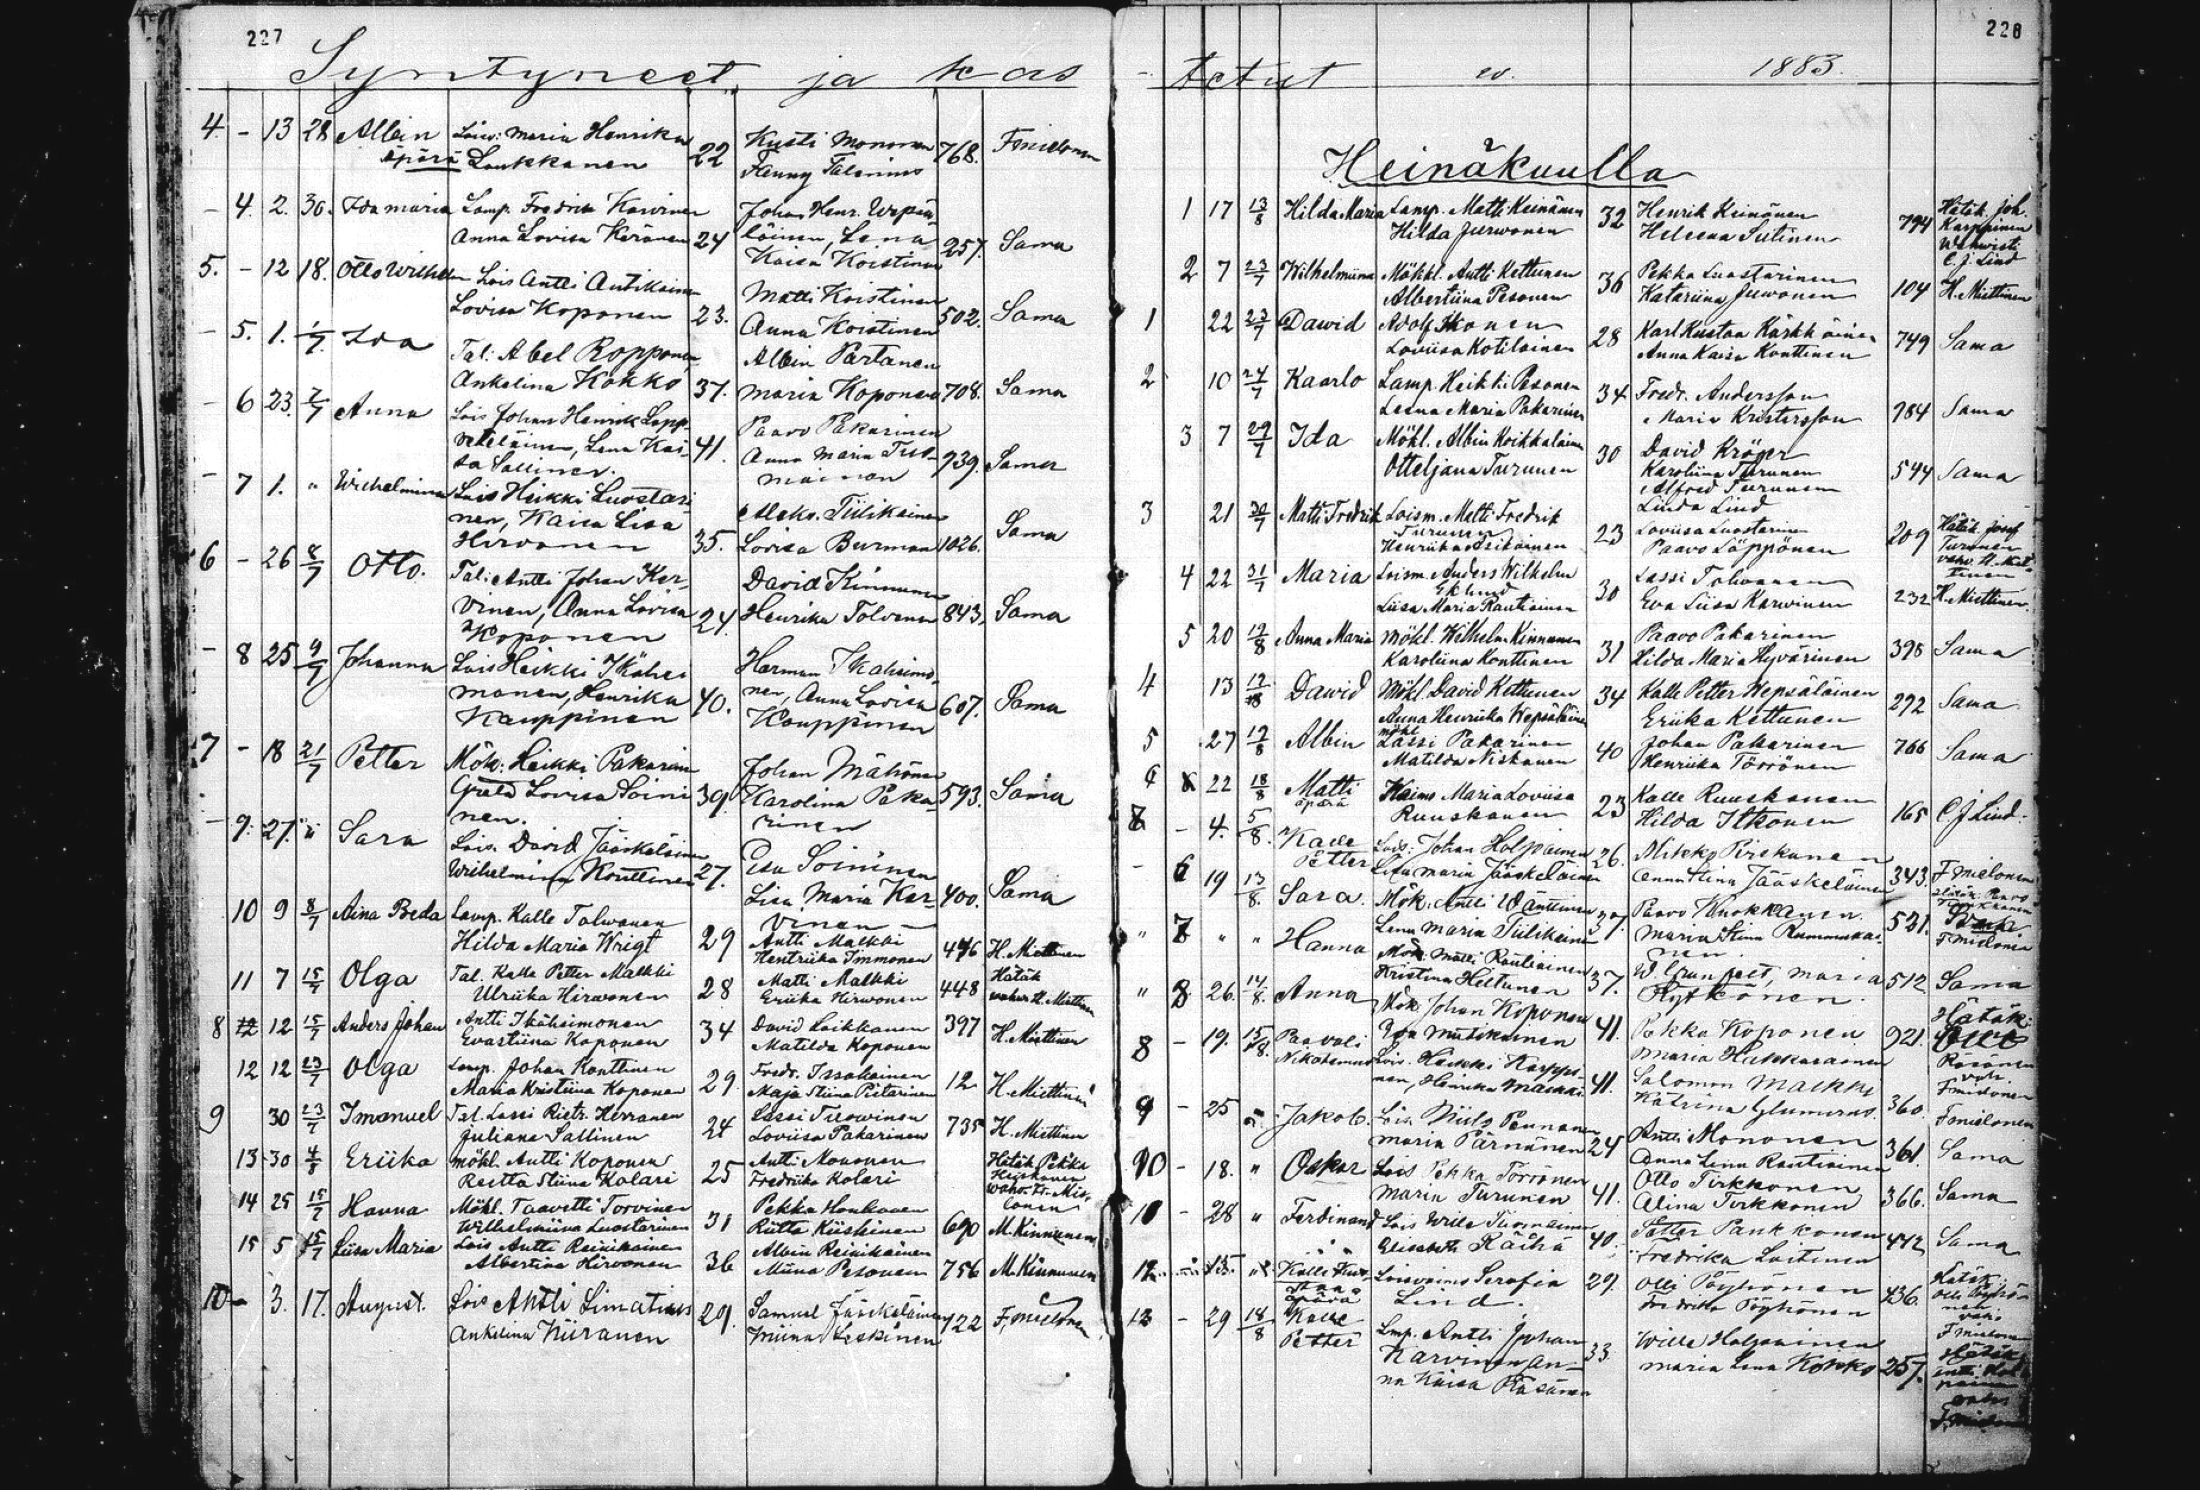 227
Syntyneet ja kas
4. - 13 28 Albin Lois: Maria Henrika 22 Kusti Mononen 768. F. Mielonen
äpärä Loukkanen Fanny Talenius
- 4. 2. 30. Ida Maria Lamp. Fredrik Karvinen Johan Henr. Wepsä
Anna Lovisa Keränen 24 läinen, Lena 257. Sama
Kaisa Koistinen
5. - 12 18. Otto Wilhelm Lois Antti Antikainen Matti Koistinen
Lovisa Koponen 23. Anna Koistinen 502. Sama
- 5. 1. 1/7. Ida Tal: Abel Ropponen Albin Partanen
Ankelina Kokko 37. Maria Koponen 708. Sama
- 6 23. 2/7 Anna Lois Johan Henrik Lapp- Paavo Pakarinen
veteläinen, Lena Kai- 41. Anna Maria 939. Sama
sa Sallinen.
- 7 1. " Wilhelmina Lois Heikki Luostari- Aleks. Tiilikainen
nen, Kaisa Lisa Sama
Hirvonen 35. Lovisa Burman 1026.
6 - 26 8/7 Otto. Tal: Antti Johan Kar- David Kinnunen
vinen, Anna Lovisa 24. Henrika Tolvanen 843. Sama
Koponen
- 8 25 9/7 Johanna Lois Heikki Ikähei- Herman Ikäheimo-
monen, Henrika 40. nen, Anna Lovisa 607. Sama
Kauppinen Kauppinen
7 - 18 21/7 Petter Mök: Heikki Pakarinen Johan Mähönen
Greta Lovisa Soini 39. Karolina Paka 593. Sama
nen. rinen
- 9. 27. " Sara Lois. David Jääskeläinen Esa Soininen
Wilhelmina Konttinen 27. Lisa Maria Kar- 400. Sama
vinen
10 9 8/7 Aina Beda Lamp. Kalle Tolwanen Antti Malkki
Hilda Maria Wrigt 29 Henriika Immonen 446 H. Miettinen
11 7 15/7 Olga Tal. Kalle Petter Malkki Matti Malkki Hätäk
Ulriika Hirwonen 28 Eriika Hirwonen 448 wahw. H. Miettinen
8 12 15/7 Anders Johan Antti Ikäheimonen 34 David Laikkanen 397 H. Miettinen
Evastiina Koponen Matilda Koponen
12 12 23/7 Olga Lamp. Johan Konttinen Fredr. Issakainen
Maria Kristiina Koponen 29 Maja Stiina Pietarinen 12 H. Miettinen
9 30 23/7 Imanuel Tal. Lassi Pietr. Herranen Lassi Turowinen
Juliana Sallinen 24 Loviisa Pakarinen 735 H. Miettinen
13 30 4/8 Eriika Mökl. Antti Koponen 25 Antti Mononen Hätäk. Pekka
Reetta Stiina Kolari Fredriika Kolari
14 25 15/7 Hanna Mökl. Taavetti Torvinen Pekka Honkanen
Wilhelmiina Luostarinen 31 Riitta Kiiskinen 690 M. Kinnunen
15 5 15/7 Liisa Maria Lois Antti Reinikainen Albin Reinikainen
Albertina Hirvonen 36 Miina Pesonen 756 M. Kinnunen
10 - 3. 17. August. Lois Antti Limatius 29. Samuel Jääskeläinen 422 F. Mielonen
Ankelina Kiiranen Miina Leskinen
228
tetut w. 1883.
Heinäkuulla
1 17 13/8 Hilda Maria Lamp. Matti Keinänen 32 Henrik Keinänen 794 Hätäk. Joh. Karppinen
Hilda Jurwonen Heleena Sutinen Wahwisti C. J. Lind
2 7 23/7 Wilhelmiina Mökkl. Antti Kettunen 36 Pekka Luostarinen 104 H. Miettinen
Albertiina Pesonen Katariina Juwonen
1 22 23/7 Dawid Adolf Ikonen 28 Karl Kustaa Kärkkäinen 749 Sama
Loviisa Kotilainen Anna Kaisa Konttinen
2 10 24/7 Kaarlo Lamp. Heikki Pesonen 34 Fredr. Andersson 784 Sama
Leena Maria Pakarinen Maria Kristersson
3 7 29/7 Ida Mökl. Albin Koikkalainen 30 David Kröger 544 Sama
Otteljana Turunen Karoliina Turunen
Alfred Turunen
Linda Lind
3 21 30/7 Matti Fredrik Loism. Matti Fredrik Turunen 23 Loviisa Luostarinen 209 Hätäk. Josef Turunen
Paavo Läppönen vahv. H. Miettinen
4 22 31/7 Maria Loism. Anders Wilhelm Eklund 30 Lassi Tolvanen 232 H. Miettinen
Liisa Maria Rautiainen Eva Liisa Karwinen
5 20 12/8 Anna Maria Mökl. Wilhelm Kinnunen 31 Paavo Pakarinen 398 Sama
Karoliina Konttinen Hilda Maria Hyvärinen
4 13 12/8 Dawid Mökl. David Kettunen 34 Kalle Petter Wepsäläinen 292 Sama
Anna Henriika Wepsäläinen Eriika Kettunen
5 27 12/8 Albin Mökl. Lassi Pakarinen 40 Johan Pakarinen 766 Sama
Matilda Niskanen Henriika Törrönen
6 22 18/8 Matti Maria Loviisa 23 Kalle Ruuskanen 165 C. J. Lind.
äpärä Ruuskanen Hilda Itkonen
7 - 4. 5/8. Kalle Petter Lois: Johan Holpainen 26. Mikko Pirskanen 343. F. Mielonen
Lisa Maria Jääskeläinen Anna Stina Jääskeläinen
- 6 19 13/8. Sara. Mök: Antti Wänttinen 37. Paavo Kuokkanen. 521. F. Mielonen
Lena Maria Tiilikainen Maria Stina Rummukai-
nen.
" 7 " " Hanna Mök. Matti Rautiainen 37. W. Grunqvist, Maria 512 Sama
Kristina Heltunen Hytkönen.
" 8 26. 14/8. Anna Mök. Johan Koponen 41. Pekka Koponen 921. Hätäk:
Eva Mutikainen Maria Hakkarainen Räsänen vah. F. Mielonen
8 - 19. 15/8. Paavali Nikodemus Lois. Heikki Karppi- 41. Salomon Malkki 360. F. Mielonen
nen, Henrika Malkki Katrina Glumerus.
9 - 25 ". Jakob. Lois. Niilo Pennanen 24 Antti Mononen 361. Sama
Maria Pärnänen Anna Lena Rautiainen
10 - 18. " Oskar Lois Pekka Törrönen 41. Otto Tirkkonen 366. Sama
Maria Turunen Alina Tirkkonen
10 - 28 " Ferdinand Lois Wille Tiermainen 40. Petter Pankkonen 442 Sama
Elisabeth Räihä Fredrika Laitinen
12. - 15. " Kalle Kus- Loisvaimo Serafia 29. Olli Pöyhönen 436. Hätäk. Olli Pöyhö-
taa äpärä Lind. Fredrika Pöyhönen nen vahv. F. Mielonen
13 - 29 18/8 Kalle Petter Lmp. Antti Johan 33. Wille Holpainen 257. Hätäk.
Karvinen An- Maria Lena Kokko
na Kaisa Räsänen F. Mielonen